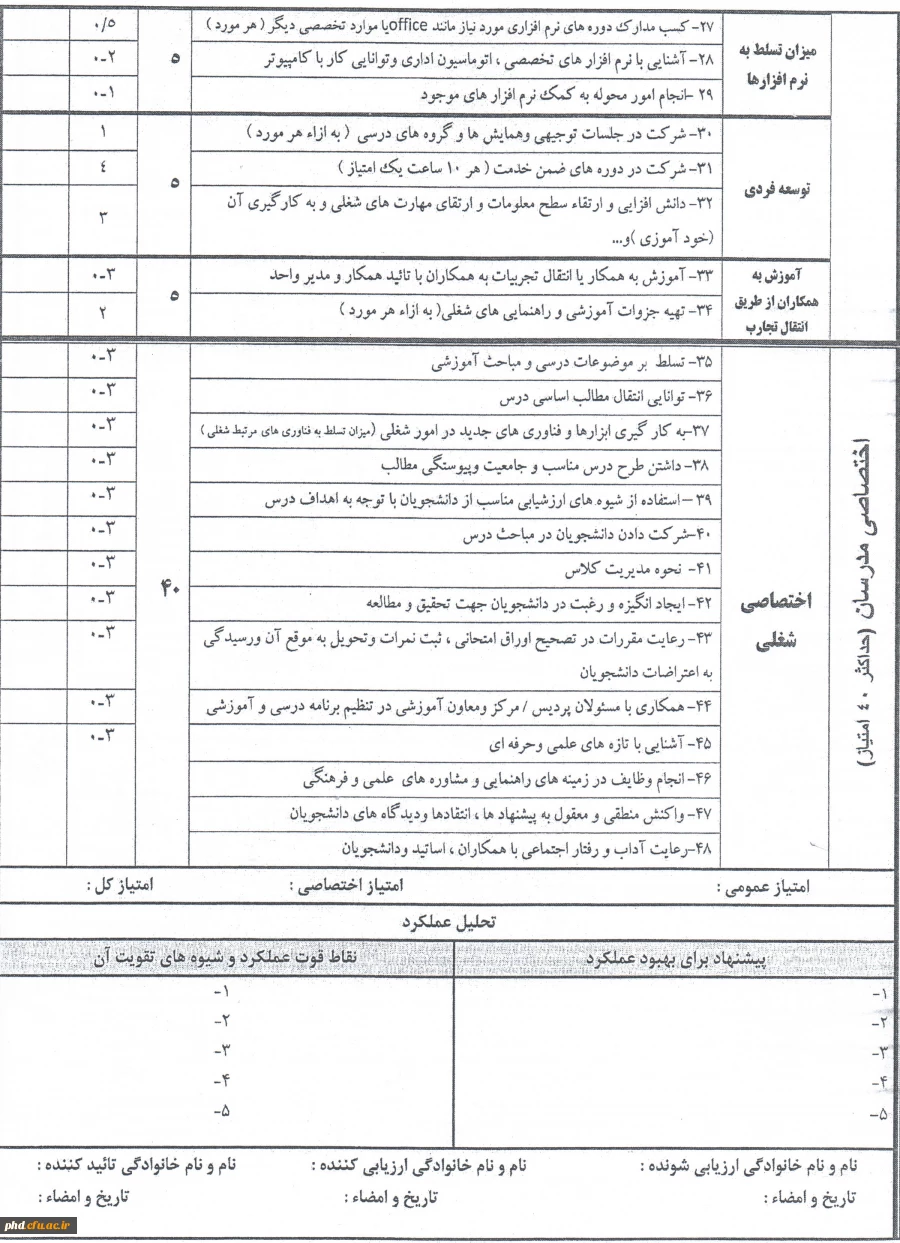 میزان تسلط به
نرم افزارها
۲۷- کسب مدارک دوره های نرم افزاری مورد نیاز مانند officeیا موارد تخصصی دیگر ( هر مورد )
۵
۰/۵
۲۸- آشنایی با نرم افزار های تخصصی ، اتوماسیون اداری وتوانایی کار با کامپیوتر
۰-۲
۲۹ -انجام امور محوله به کمک نرم افزار های موجود
۰-۱
توسعه فردی
۳۰- شرکت در جلسات توجیهی وهمایش ها و گروه های درسی ( به ازاء هر مورد )
۵
۱
۳۱- شرکت در دوره های ضمن خدمت ( هر ۱۰ ساعت یک امتیاز )
٤
۳۲- دانش افزایی و ارتقاء سطح معلومات و ارتقای مهارت های شغلی و به کارگیری آن
(خود آموزی )و...
۳
آموزش به
همکاران از طریق
انتقال تجارب
۳۳- آموزش به همکار یا انتقال تجربیات به همکاران با تائید همکار و مدیر واحد
۵
۰-۳
۳۴- تهیه جزوات آموزشی و راهنمایی های شغلی( به ازاء هر مورد )
۲
اختصاصی مدرسان (حداکثر ٤٠ امتیاز)
اختصاصی
شغلی
۴۰
۳۵- تسلط بر موضوعات درسی و مباحث آموزشی
۰-۳
۳۶- توانایی انتقال مطالب اساسی درس
۰-۳
۳۷-به کار گیری ابزارها و فناوری های جدید در امور شغلی (میزان تسلط به فناوری های مرتبط شغلی )
۰-۳
۳۸- داشتن طرح درس مناسب و جامعیت وپیوستگی مطالب
۰-۳
۳۹ –استفاده از شیوه های ارزشیابی مناسب از دانشجویان با توجه به اهداف درس
۰-۳
۴۰-شرکت دادن دانشجویان در مباحث درس
۰-۳
۴۱- نحوه مدیریت کلاس
۰-۳
۴۲- ایجاد انگیزه و رغبت در دانشجویان جهت تحقیق و مطالعه
۰-۳
۴۳- رعایت مقررات در تصحیح اوراق امتحانی ، ثبت نمرات وتحویل به موقع آن ورسیدگی
به اعتراضات دانشجویان
۰-۳
۴۴- همکاری با مسئولان پردیس / مرکز ومعاون آموزشی در تنظیم برنامه درسی و آموزشی
۰-۳
۴۵- آشنایی با تازه های علمی وحرفه ای
۰-۳
۴۶- انجام وظایف در زمینه های راهنمایی و مشاوره های علمی و فرهنگی
۴۷- واکنش منطقی و معقول به پیشنهاد ها ، انتقادها ودیدگاه های دانشجویان
۴۸-رعایت آداب و رفتار اجتماعی با همکاران ، اساتید ودانشجویان
امتیاز عمومی : امتیاز اختصاصی : امتیاز کل :
تحلیل عملکرد
پیشنهاد برای بهبود عملکرد
نقاط قوت عملکرد و شیوه های تقویت آن
۱-
۲-
۳-
۴-
۵-
۱-
۲-
۳-
۴-
۵-
نام و نام خانوادگی ارزیابی شونده : نام و نام خانوادگی ارزیابی کننده : نام و نام خانوادگی تائید کننده :
تاریخ و امضاء : تاریخ و امضاء : تاریخ و امضاء :
phd.cfu.ac.ir